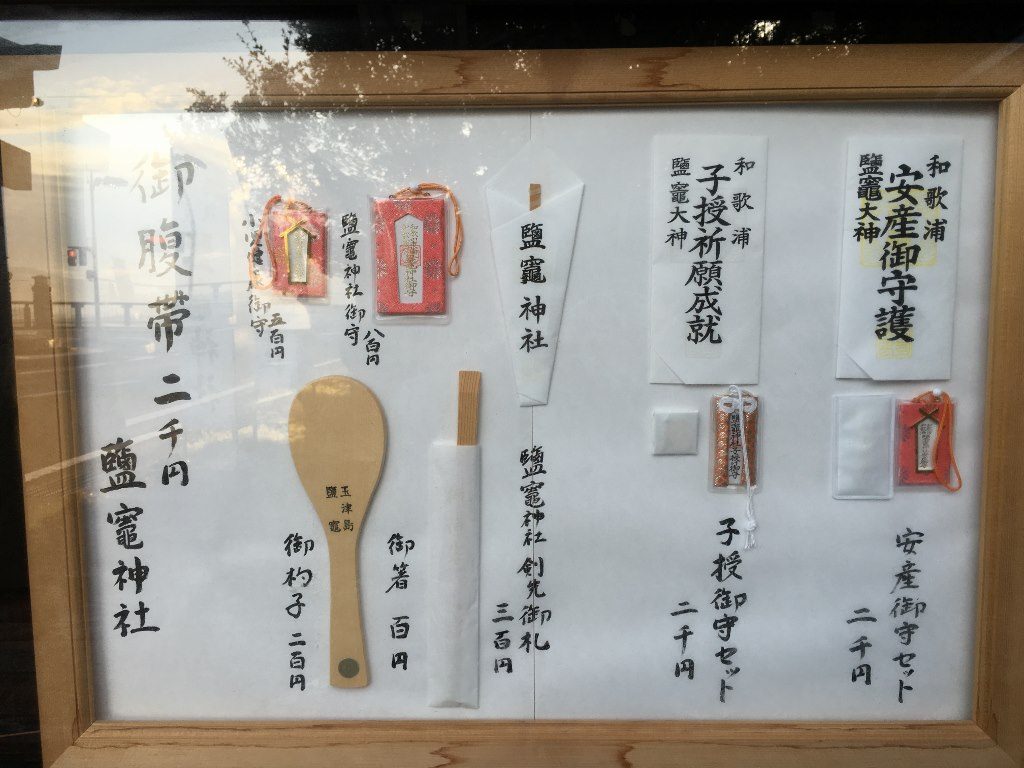 和歌浦
安産御守護
鹽竈大神
安産御守セット
二千円
和歌浦
子授祈願成就
鹽竈大神
子授御守セット
二千円
鹽竈神社
鹽竈神社 剣先御札
三百円
御箸 百円
鹽竈神社御守
八百円
玉津島
鹽竈
御杓子 二百円
御守
五百円
御腹帯 二千円
鹽竈神社